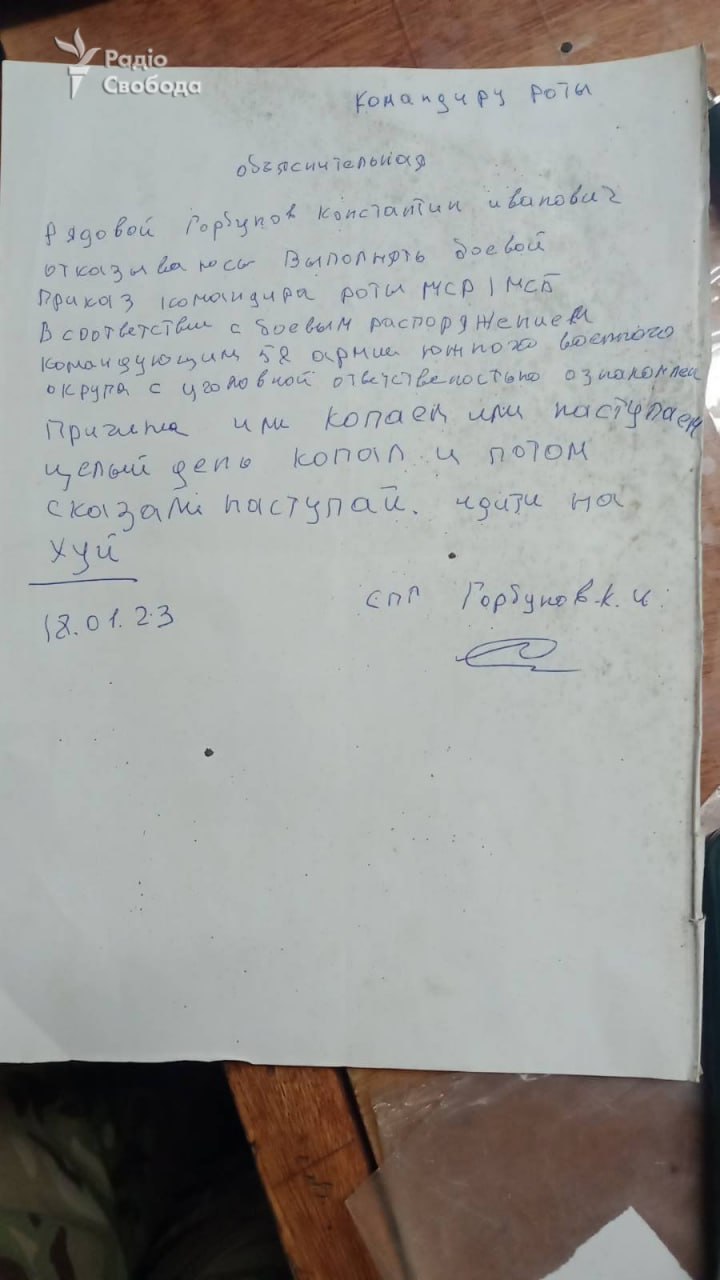 Радіо
Свобода
командиру роты
объяснительная
Рядовой Горбунов константин иванович
отказываюсь выполнять боевой
приказ командира роты МСР 1 МСБ
В соответствии с боевым распоряжением
командующим 58 армии южного военного
округа с уголовной ответственостью ознакомлен
Причина или копаем или наступаем
целый день копал и потом
сказали наступай. идити на
хуй
18.01.23
СПП Горбунов.к.и.